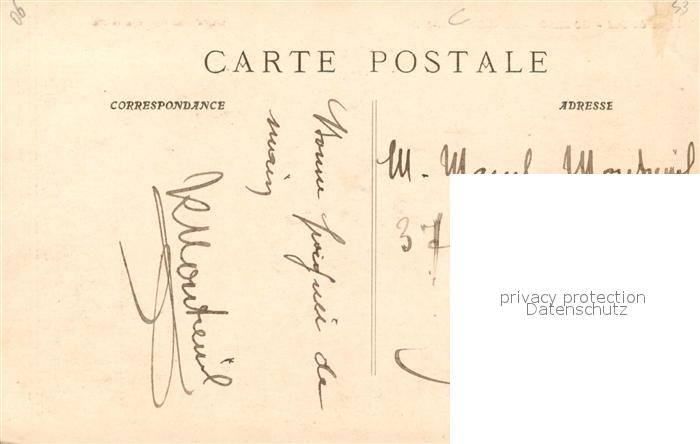 53
CARTE POSTALE
CORRESPONDANCE
ADRESSE
Bonne poignée de
main
Monteuil
M. Marcel Monteuil
37
privacy protection
Datenschutz